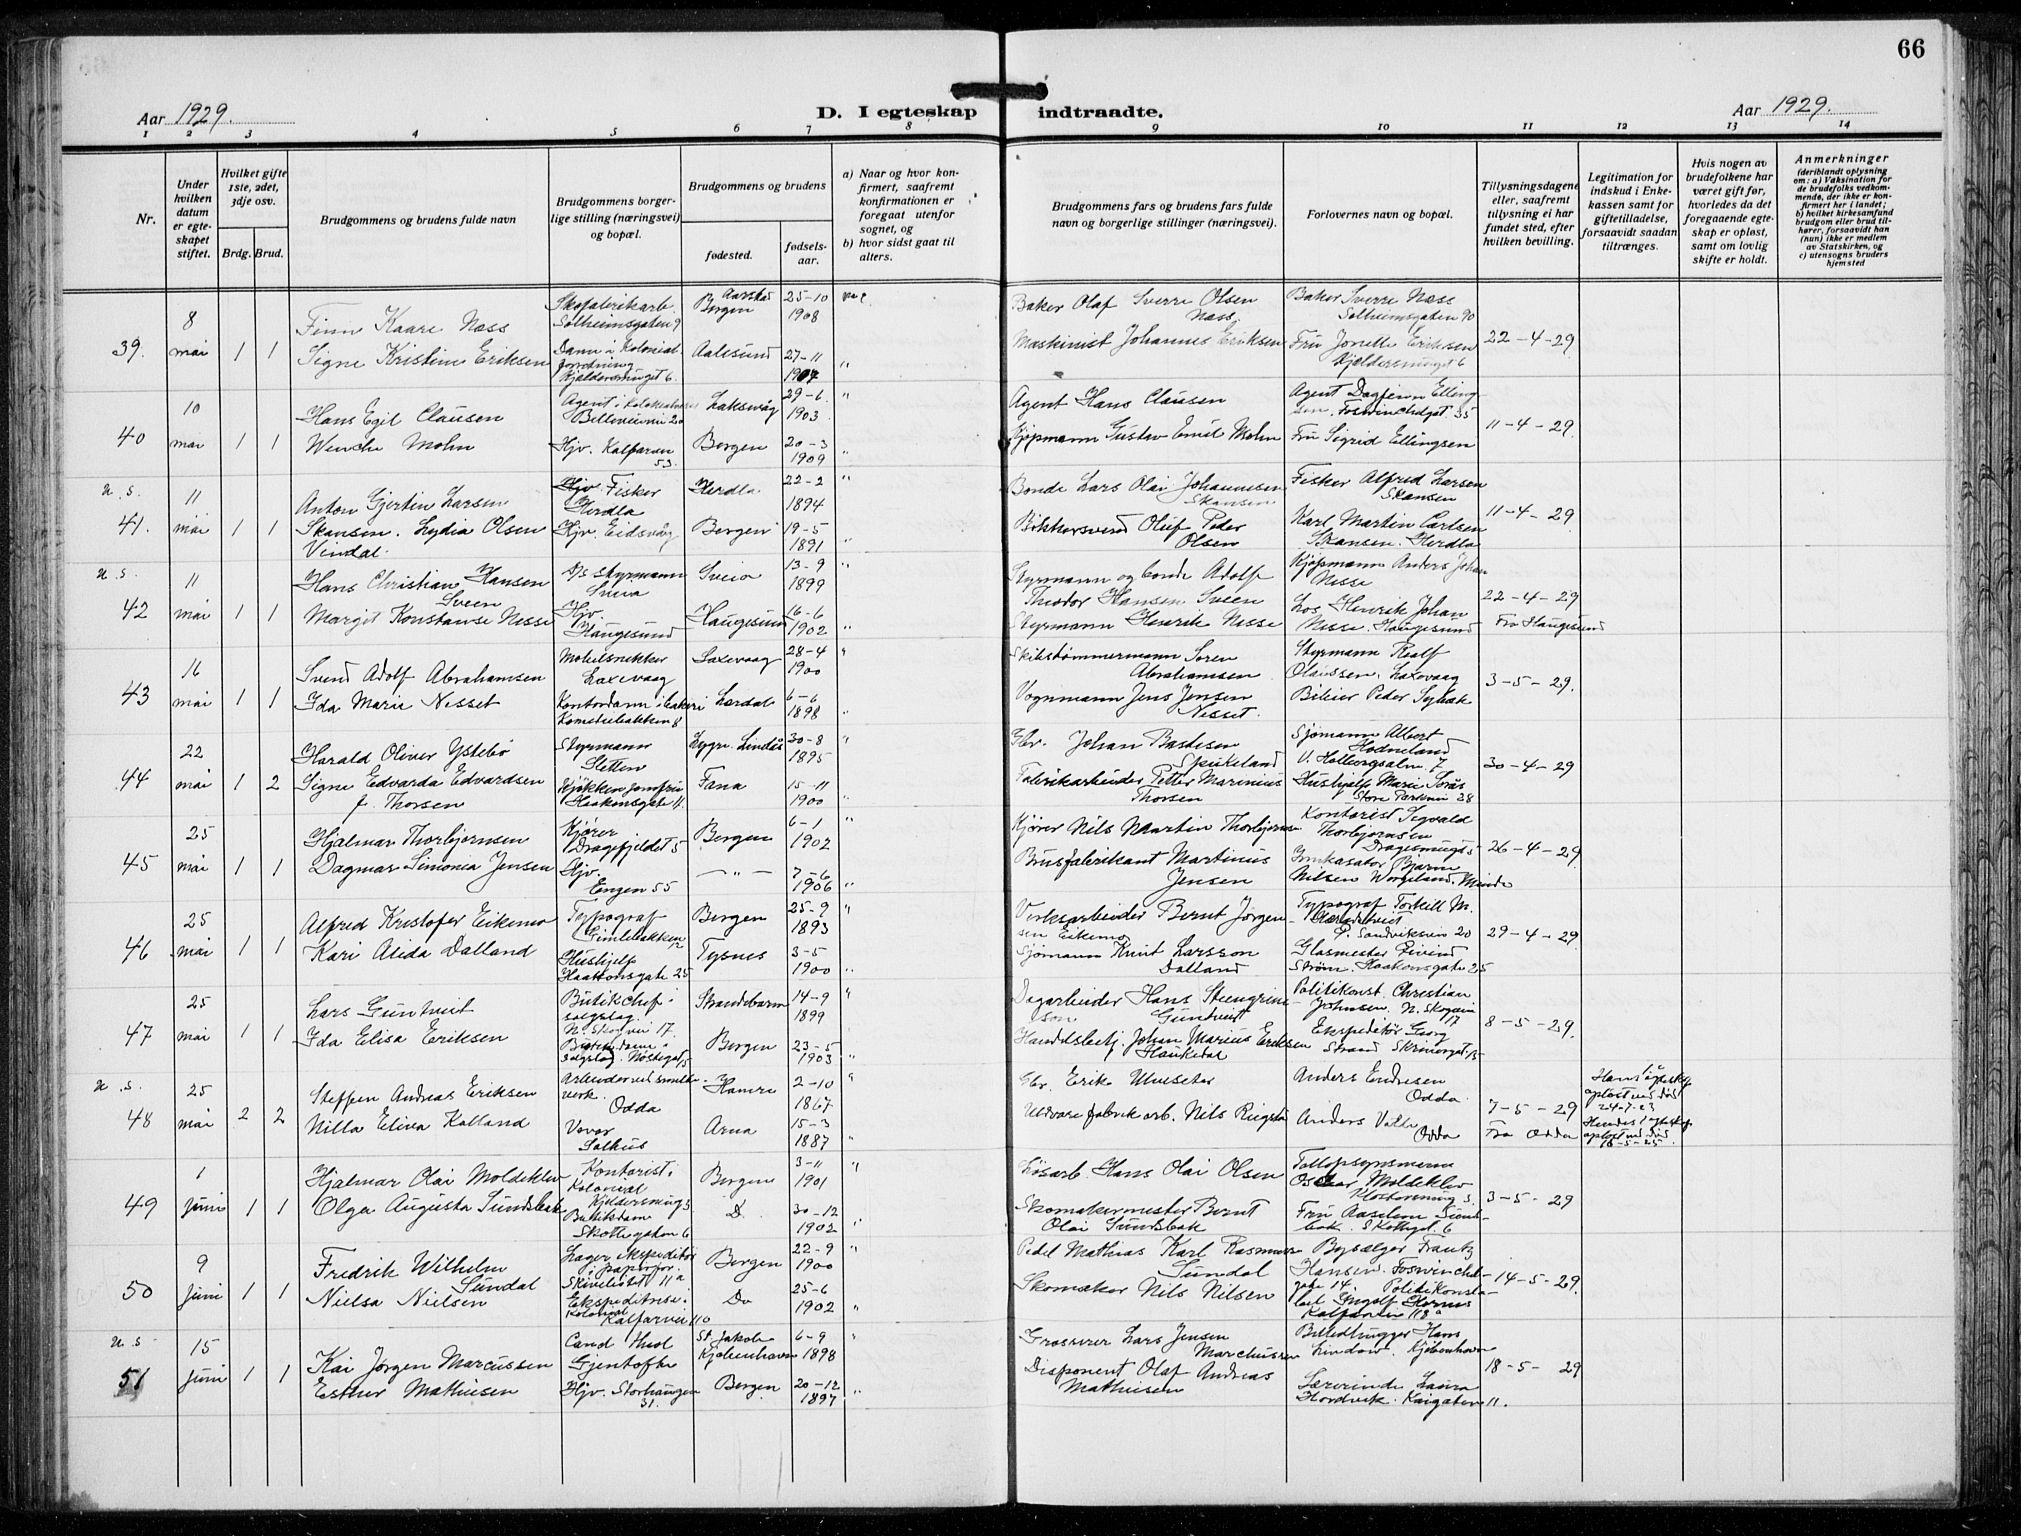 66
Aar 1929.
D. I egteskap indtraadte.
Aar 1929.
1 2 3 4 5 6 7 8 9 10 11 12 13 14
Nr.
Under hvilken datum er egteskapet stiftet.
Hvilket gifte 1ste, 2det, 3dje osv.
Brdg. Brud.
Brudgommens og brudens fulde navn
Brudgommens borgerlige stilling (næringsvei) og bopæl.
Brudgommens og brudens
fødested.
fødselsaar.
a) Naar og hvor konfirmert, saafremt konfirmationen er foregaat utenfor sognet, og
b) hvor sidst gaat til alters.
Brudgommens fars og brudens fars fulde navn og borgerlige stillinger (næringsvei).
Forlovernes navn og bopæl.
Tillysningsdagene eller, saafremt tillysning ei har fundet sted, efter hvilken bevilling.
Legitimation for indskud i Enkekassen samt for giftetilladelse, forsaavidt saadan tiltrænges.
Hvis nogen av brudefolkene har været gift før, hvorledes da det foregaaende egteskap er opløst, samt om lovlig skifte er holdt.
Anmerkninger (deriblandt oplysning om: a) Vaksination for de brudefolks vedkommende, der ikke er konfirmert her i landet; b) hvilket kirkesamfund brudgom eller brud tilhører, forsaavidt han (hun) ikke er medlem av Statskirken, og c) utensogns bruders hjemsted
39. 8 mai 1 1
Finn Kaare Næss
Skofabrikarb. Solheimsgaten 9
Aarstad Bergen 25-10 1908
Baker Olaf Sverre Olsen Næss.
Baker Sverre Næss Solheimsgaten 90
22-4-29
Signe Kristine Eriksen
Dame i Kolonial forretning Kjeldersmuget 6.
Aalesund 27-11 1904 "
Maskinist Johannes Eriksen
Fru Jonette Eriksen Kjeldersmuget 6
40 10 mai 1 1
Hans Egil Clausen
Agent i
Belleveien 20
Laksevåg 29-6 1903 "
Agent Hans Clausen
Agent Dagfinn Ellingsen. Foswinckelgt. 35
11-4-29
Wenche Mohn
Hjv. Kalfarvn 53.
Bergen 20-3 1909 "
Kjøpmann Gustav Emil Mohn
Fru Sigrid Ellingsen
u.s.
41. 11 mai 1 1
Anton Gjertin Larsen Skansen.
Fisker Herdla
Herdla 22-2 1894 "
Bonde Lars Olai Johannessen Skansen
Fisker Alfred Larsen Skansen
11-4-29.
Lydia Olsen Vindal.
Hjv. Eidsvåg
Bergen 19-5 1891 "
Bøkkersvend Oluf Peder Olsen
Karl Martin Carlsen Skansen. Herdla
u.s.
42 11 mai 1 1
Hans Christian Hansen Sveen
D/s Styrmann Sveio
Sveio 13-9 1899 "
Styrmann og bonde Adolf Theodor Hansen Sveen
Kjøpmann Anders Johan Nesse
22-4-29 Fra Haugesund
Margit Konstanse Nesse
Hjv Haugesund
Haugesund 16-6 1902 "
Styrmann Henrik Nesse
Los Henrik Johan Nesse. Haugesund
43 16 mai 1 1
Svend Adolf Abrahamsen
Møbelsnekker Laxevaag
Laxevaag 28-4 1900 "
Skibstømmermann Søren Abrahamsen
Styrmann Realf Olaussen, Laxevaag
3-5-29.
Ida Marie Nesset
Kontordame i bakeri Komediebakken 8
Lærdal 6-6 1898 "
Vognmann Jens Jensen Nesset.
Bileier Peder
44 22 mai 1 2
Harald Oliver Ystebø
Styrmann Sletten
Lygre. Lindås 30-8 1895 "
Gbr. Johan Bastesen
Sjømann Albert Hodneland V. Holbergsalm. 7
30-4-29
Signe Edvarda Edvardsen f. Thorsen
Kjøkkenjomfru Haakonsgate 11.
Fana 15-11 1900 "
Fabrikarbeider Petter Marinius Thorsen
Hushjelp Marie Store Parkvei 28
45 25 mai 1 1
Hjalmar Thorbjørnsen
Kjører Dragefjeldet 5
Bergen 6-1 1902 "
Kjører Nils Martin Thorbjørnsen
Kontorist Sigvald Thorbjørnsen Dragesmugt 5
26-4-29
Dagmar Simonia Jensen
Hjv. Engen 55
—"— 7-6 1906 "
Brusfabrikant Martinus Jensen
Inkasator Bjarne Nilsen Worgeland. Minde
46 25 mai 1 1
Alfred Kristofer Eikemo
Typograf Gimlebakken 12
Bergen 25-9 1893 "
Verksarbeider Bernt Jørgensen Eikemo
Typograf Torkill M.
P. Sandviksvei 20
29-4-29
Kari Alida Dalland
Hushjelp Haakonsgate 25
Tysnes 3-5 1900 "
Sjømann Knut Larsson Dalland
Glasmester Eivind Strøm. Haakonsgate 25
47 25 mai 1 1
Lars Guntveit
Butikchef i salgslag. N. Skogvei 17.
Strandebarm 14-9 1899 "
Dagarbeider Hans Steengrimsson Guntveit
Politikonst. Christian Johnsen. N. Skogvei 17
8-5-29.
Ida Elisa Eriksen
Butikdame i salgslag. Nøstegat.
Bergen 23-5 1903 "
Handelsbetj. Johan Marius Eriksen Haukedal
Ekspeditør Georg Strand Skrivergt. 13
u.s.
48 25 mai 2 2
Steffen Andreas Eriksen
Arbeider ved smelteverk. Odda
Hamre 2-10 1867 "
Gbr. Erik
Anders Endresen Odda.
7-5-29 Fra Odda
Hans 1 egtesk. opløst ved død 24-7-23
Nilla Elina Kalland
Vever Salhus
Arna 15-3 1887 "
Uldvarefabrik arb. Nils Ringstad
Anders Odda
Hendes 1 egtesk. opløst ved død 16-5-25.
49 1 Juni 1 1
Hjalmar Olai Moldeklev
Kontorist i Kolonial Kjeldersmug 3
Bergen 3-11 1901 "
Løsarb. Hans Olai Olsen
Tollopsynsmann Oscar Moldeklev Klostersmug 3.
3-5-29
Olga Augusta Sundsbak
Butikdame Skottegaten 6
D. 30-12 1902 "
Skomakermester Bernt Olai Sundsbak
Fru Aaselene Sundsbak. Skottegt. 6
50 9 Juni 1 1
Fredrik Wilhelm Sundal
Lagerekspeditør i papirfor. Skivebakk 11a
Bergen 22-9 1900 "
Pedel Mathias Karl Rasmussen Sundal
Bysælger Frantz Hansen. Foswinckelgate 14.
14-5-29.
Nielsa Nielsen
Ekspeditrise i Kolonial Kalfarvei 110
Do 25-6 1902 "
Skomaker Nils Nilsen
Politikonstabel Ingolf Kalfarvei 118a
u.s.
51 15 Juni 1 1
Kai Jørgen Marcussen
Cand theol Gjentofte
St. Jakob Kjøbenhavn 6-9 1898 "
Grosserer Lars Jensen Marchussen
Billedhugger Hans Lindow. Kjøbenhavn
18-5-29
Esther Mathiesen
Hjv. Storhaugen 31.
Bergen 20-12 1897 "
Disponent Olaf Andreas Mathiesen
Lærerinde Laura Hordvik. Kaigaten 11.